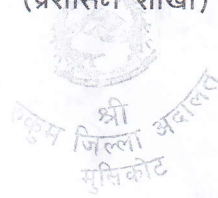 (प्रशासन शाखा)
श्री
रुकुम जिल्ला अदालत
मुसिकोट